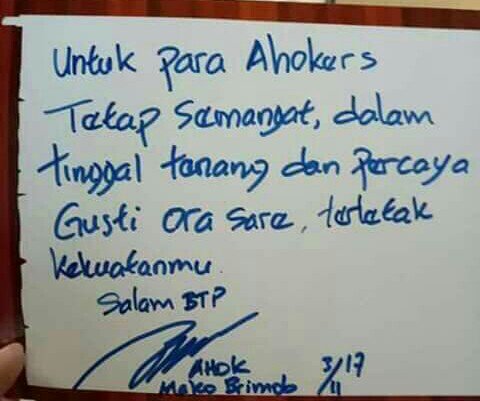 Untuk para Ahokers
Tetap Semangat, dalam
tinggal tenang dan percaya
Gusti ora sare, terletak
kekuatanmu.
Salam BTP
AHOK
Mako Brimob
3/11 17